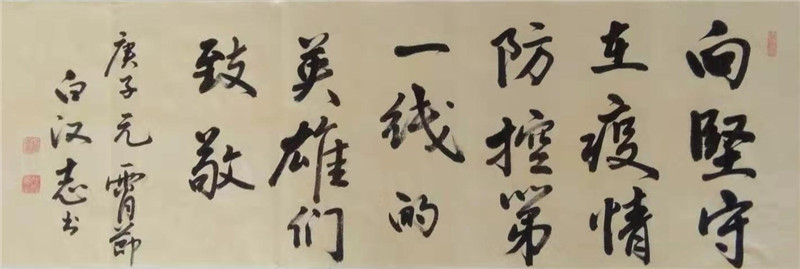 向坚守
在疫情
防控第
一线的
英雄们
致敬
庚子元霄节
白汉志书